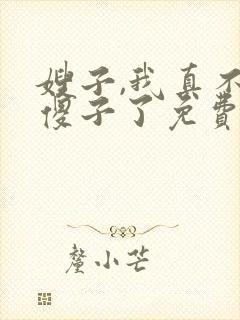 嫂子,我真不
傻子了免费
蔾小芒